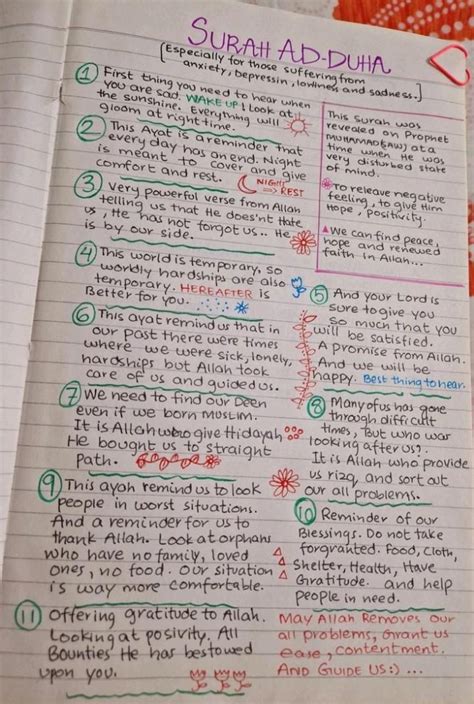 SURAH AD-DUHA
[Especially for those suffering from
anxiety, depressin, lonliness and sadness.]
① First thing you need to hear when
you are sad. WAKE UP! Look at
the sunshine. Everything will
gloom at right time.
② This Ayat is a reminder that
every day has an end. Night
is meant to cover and give
comfort and rest.
NIGHT
⇒ REST
③ Very powerful verse from Allah
telling us that He does'nt Hate
us, He has not forgot us.. He
is by our side.
This Surah was
revealed on Prophet
MUHAMMAD(SAW) at a
time when He was
very disturbed state
of mind.
To releave negative
feeling, to give Him
Hope, positivity
We can find peace,
hope and renewed
faith in Allah...
④ This world is temporary, so
worldly hardships are also
temporary. HEREAFTER is
Better for you.
⑤ And your Lord is
sure to give you
so much that you
will be satisfied.
A promise from Allah.
And we will be
happy. Best thing to hear.
⑥ This ayat remind us that in
our past there were times
where we were sick, lonely,
hardships but Allah took
care of us and guided us.
⑦ We need to find our Deen
even if we born MUSLIM.
It is Allah who give Hidayah
He bought us to straight
Path.
⑧ Many of us has gone
through difficult
times, But who was
looking after us?.
It is Allah who provide
us rizq, and sort out
our all problems.
⑨ This ayah remind us to look
people in worst situations.
And a reminder for us to
thank Allah. Look at orphans
who have no family, loved
ones, no food. Our situation
is way more comfortable.
⑩ Reminder of our
Blessings. Do not take
forgranted. Food, Cloth,
Shelter, Health, Have
Gratitude. and help
people in need.
⑪ Offering gratitude to Allah.
Looking at posivity, All
Bounties He has bestowed
upon you.
May Allah Removes our
all problems, Grant us
ease, contentment.
AND GUIDE US:) ...